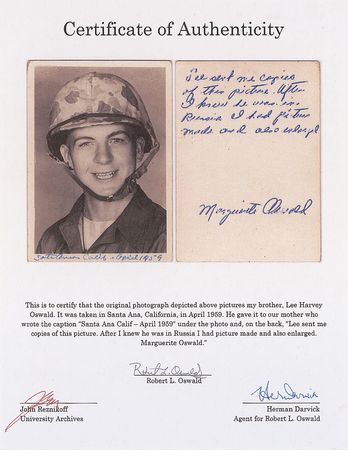 Certificate of Authenticity
Lee sent me copies
of this picture. After
I knew he was in
Russia I had picture
made and also enlarged
Marguerite Oswald
Santa Ana Calif - April 1959
This is to certify that the original photograph depicted above pictures my brother, Lee Harvey
Oswald. It was taken in Santa Ana, California, in April 1959. He gave it to our mother who
wrote the caption “Santa Ana Calif – April 1959” under the photo and, on the back, “Lee sent me
copies of this picture. After I knew he was in Russia I had picture made and also enlarged.
Marguerite Oswald.”
Robert L. Oswald
Robert L. Oswald
John Reznikoff
University Archives
Her Darvick
Herman Darvick
Agent for Robert L. Oswald